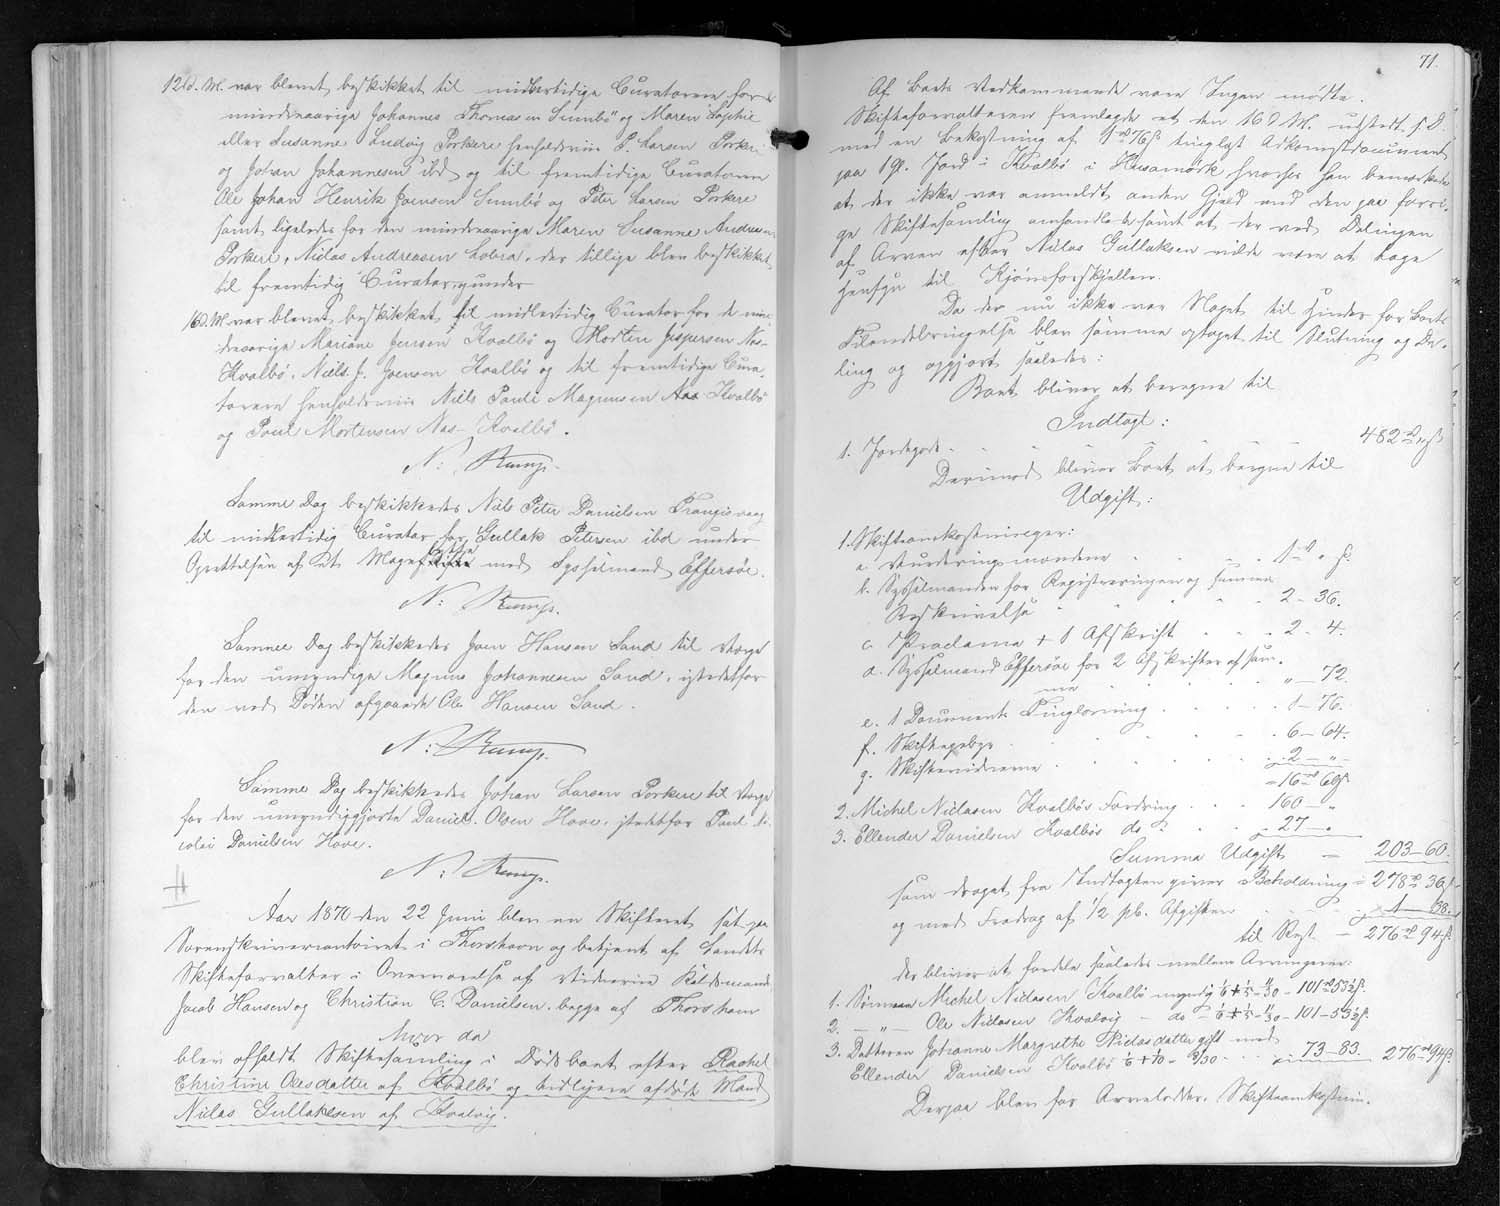 12 d. M. var blevet beskikket til midlertidige Curatorer for de
mindreaarige Johannes Thomasen Sumbö og Maren Sophie
eller Susanne Ludvig Porkere henholdsviis P. Larsen Porkeri
og Johan Johannesen ibd og til fremtidige Curatorer
Ole Johan Henrik Joensen Sumbö og Peter Larsen Porkere
samt ligeledes for den mindreaarige Maren Susanne Andreasen
Porkere, Niclas Andreasen Lobra, der tillige blev beskikket
til fremtidig Curator
16 d. M. var blevet beskikket til midlertidig Curator for de min-
dreaarige Mariane Jensen Kvalbö og Morten Jespersen Nes-
Kvalbö, Niels J. Joensen Kvalbö og til fremtidige Cura-
torer henholdsviis Niels Pauli Magnusen Aas Kvalbö
og Poul Mortensen Nes-Kvalbö.
N: Rump.
Samme Dag beskikkedes Nils Peter Danielsen Trangisvaag
til midlertidig Curator for Gullak Petersen ibd under
Oprettelsen af et Mageskifte med Sysselmand Effersöe.
N: Rump.
Samme Dag beskikkedes Joen Hansen Sand til Værge
for den umyndige Magnus Johannesen Sand, istedetfor
den ved Döden afgaaede Ole Hansen Sand.
N: Rump.
Samme Dag beskikkedes Johan Larsen Porkere til Værge
for den umyndiggjorte Daniel Olsen Hove, istedetfor Poul Ni-
colai Danielsen Hove.
N: Rump.
Aar 1870 den 22 Juni blev en Skifteret sat paa
Sorenskrivercontoiret i Thorshavn og betjent af Landets
Skifteforvalter i Overværelse af Vidnerne Raadsmand
Jacob Hansen og Christian C. Danielsen, begge af Thorshavn
hvor da
blev afholdt Skiftesamling i Dödsboet efter Rachel
Christine Olesdatter af Kvalbö og tidligere afdöde Mand
Niclas Gullaksen af Kvalvig.
71.
Af Boets Vedkommende vare Ingen mödte.
Skifteforvalteren fremlagde et den 16 d. M. udstedt s. D.
med en Bekostning af 1 rd 76 ß tinglyst Adkomstdocument
paa 1 G. Jord i Kvalbö i Husamörk hvorhos han bemærkede
at der ikke var anmeldt anden Gjæld end den paa forri-
ge Skiftesamling omhandlede samt at der ved Delingen
af Arven efter Niclas Gullaksen vilde være at tage
Hensyn til Kjönsforskjellen.
Da der nu ikke var Noget til Hinder for Boets
Tilendebringelse blev samme optaget til Slutning og De-
ling og opgjort saaledes:
Boet bliver at beregne til
Indtægt:
1. Jordegods . . . . 482 rd „ ß
Derimod bliver Boet at beregne til
Udgift:
1. Skifteomkostninger:
a. Vurderingsmændene . . . . 1 rd „ ß.
b. Sysselmanden for Registreringen og sammes
Beskrivelse . . . . 2 - 36.
c. Proclama + 1 Afskrift . . . 2 - 4.
d. Sysselmand Effersöe for 2 Afskrifter af sam-
me . . . . „ - 72.
e. 1 Documents Tinglæsning . . . . 1 - 76.
f. Skiftegebyr . . . . 6 - 64.
g. Skiftevidnerne . . . . 2 - „ -
= 16 rd 60 ß
2. Michel Niclasen Kvalbös Fordring . . . 160 - „
3. Ellender Danielsen Kvalbös do . . . 27 - „
Summa Udgift - 203 - 60.
som draget fra Indtægten giver Beholdning = 278 rd 36 ß
og med Fradrag af 1/2 pb. Afgiften . . . 1 - 38.
til Rest - 276 rd 94 ß.
der bliver at fordele saaledes mellem Arvingerne:
1. Sönnen Michel Niclasen Kvalbö myndig 1/6 + 1/5 = 11/30 - 101 rd 53 1/2 ß.
2. - „ - Ole Niclasen Kvalvig - do - 1/6 + 1/5 = 11/30 - 101 - 53 1/2 ß.
3. Datteren Johanne Margrethe Niclasdatter gift med
Ellender Danielsen Kvalbö 1/6 + 1/10 = 8/30 . . 73 - 83. 276 rd 94 ß.
Derpaa blev for Arvelodder, Skifteomkostnin-